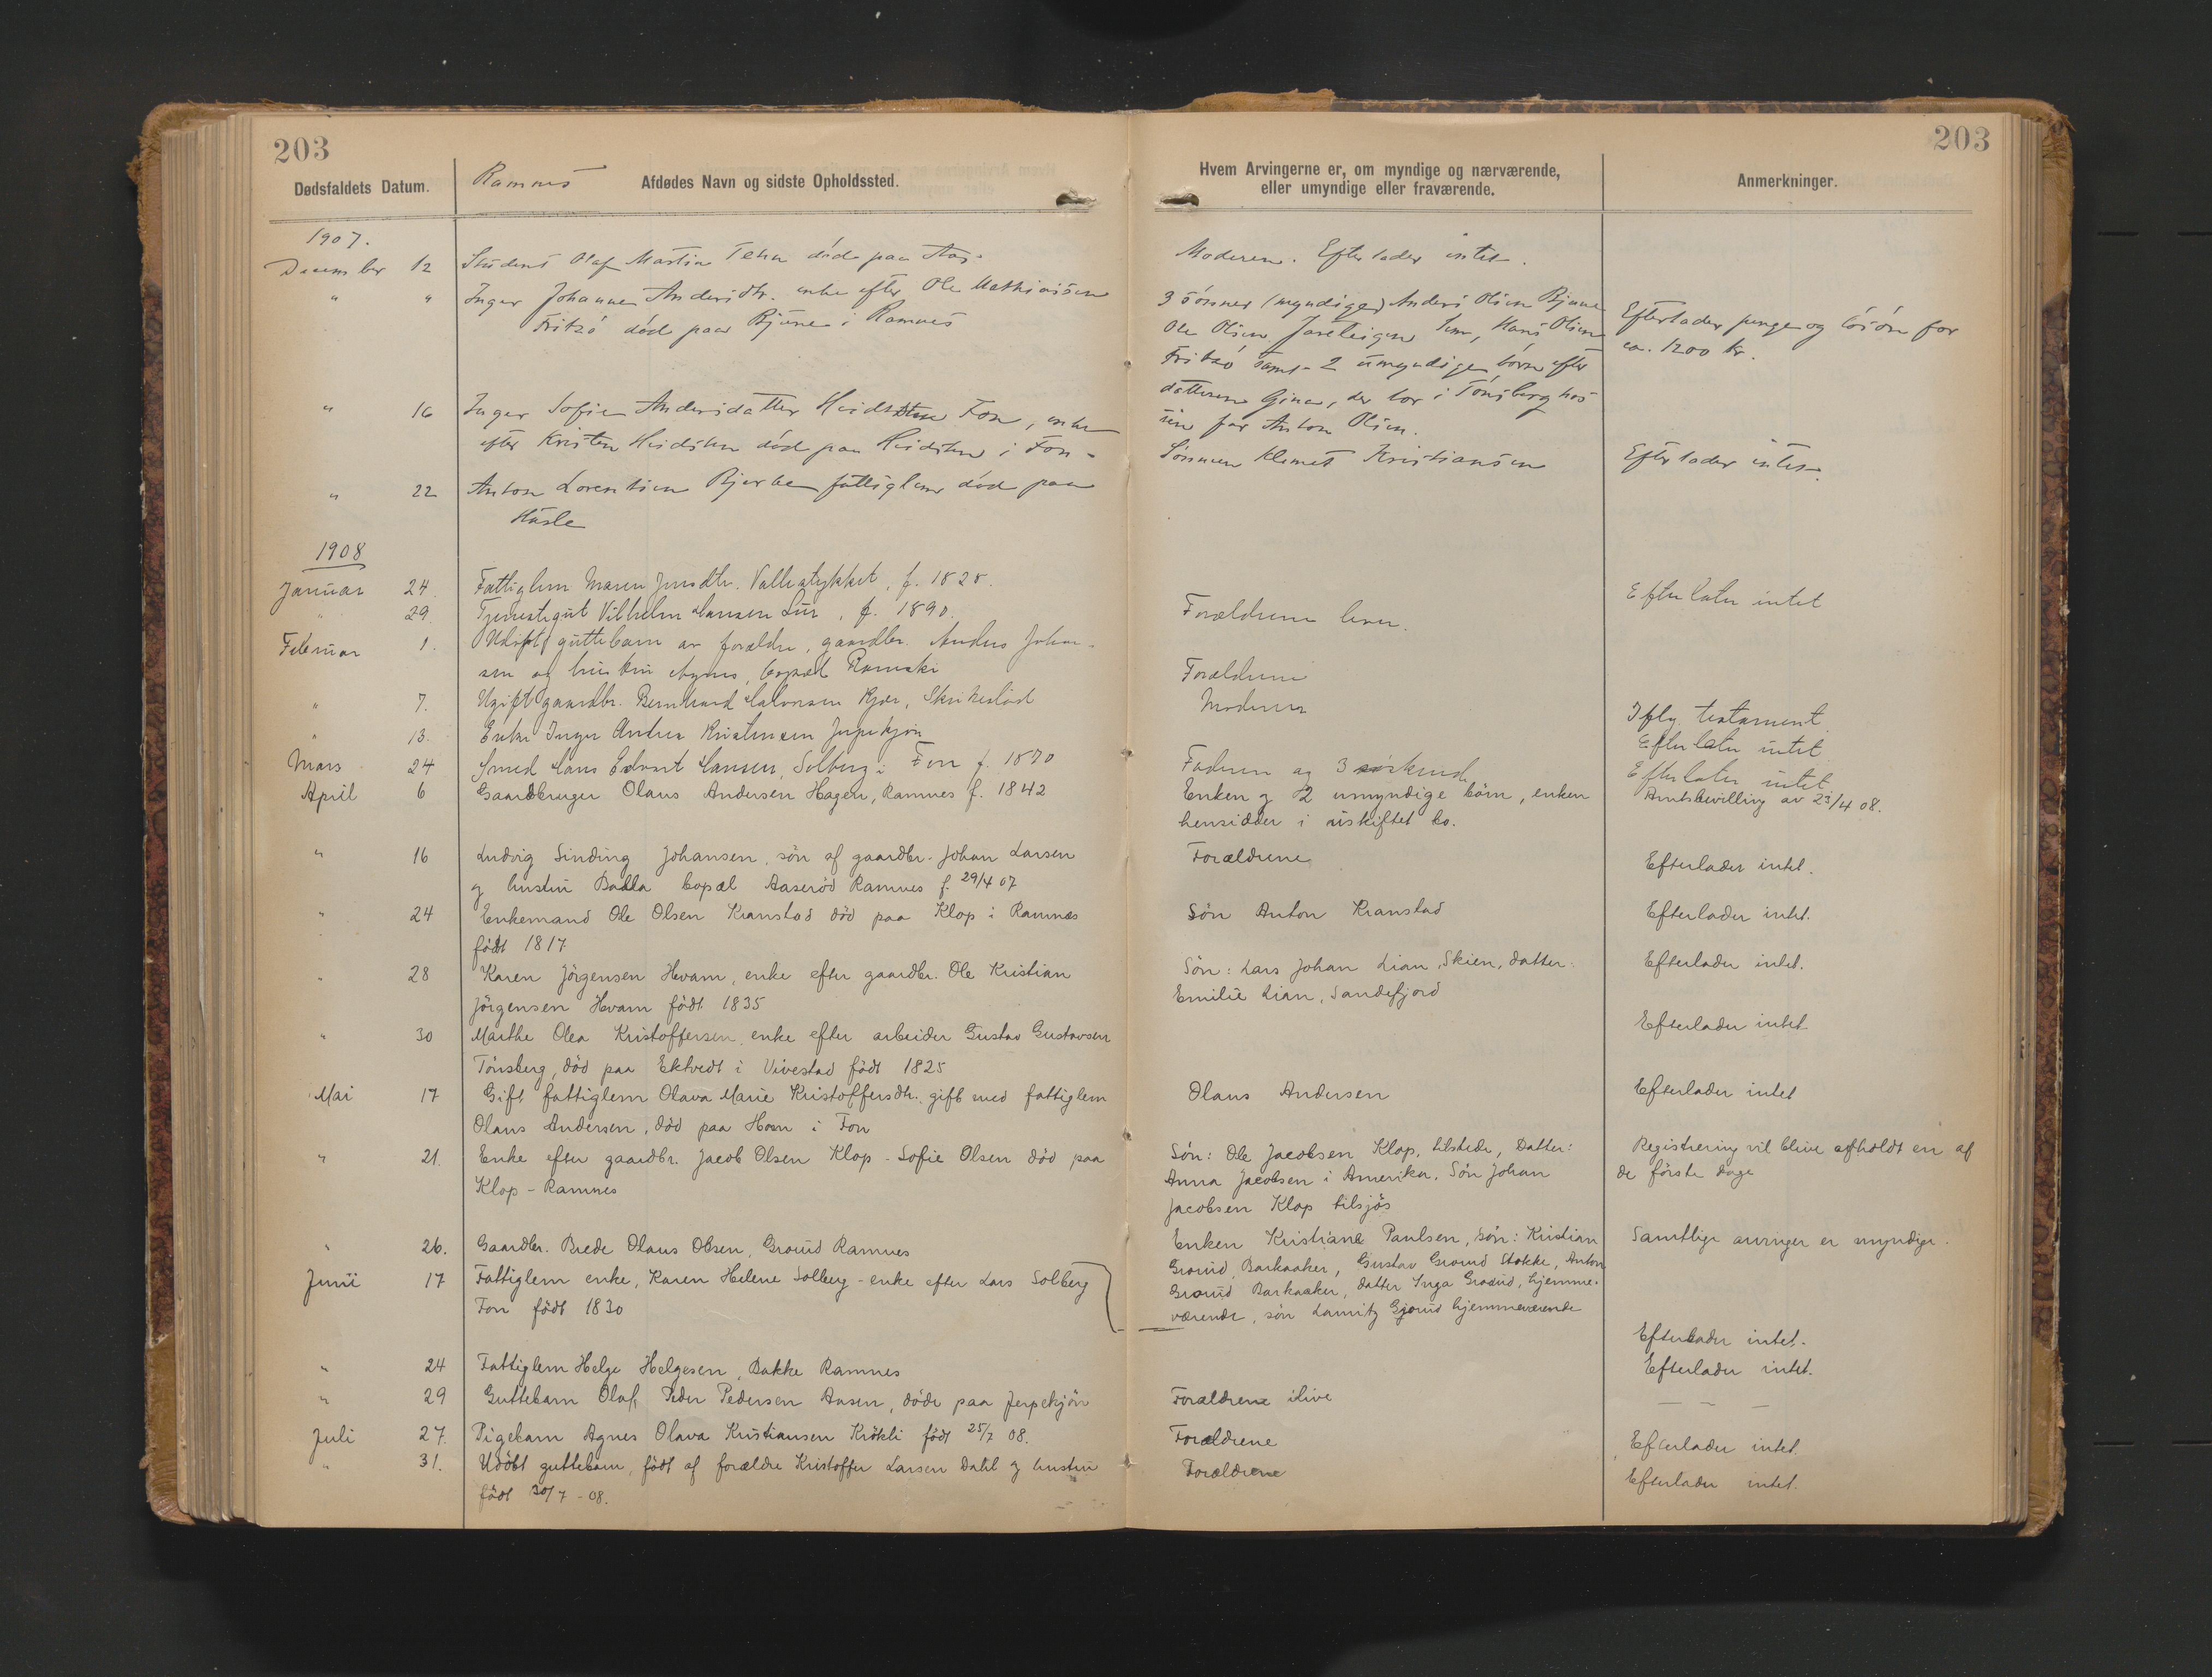 203
Dødsfaldets Datum.
Ramnes
Afdødes Navn og sidste Opholdssted.
1907.
December 12 Student Olaf Martin død paa Aas.
" " Inger Johanne Andersdtr. enke efter Ole Mathiasen
Fritzö död paa Bjüne i Ramnes
" 16 Inger Sofie Andersdatter Fon, enke
efter Kristen död paa i Fon.
" 22 Anton Lorentsen Bjerke fattiglem død paa
Hasle
1908
Januar 24. Fattiglem Maren Jensdtr. Vallestykket, f. 1825.
" 29. Tjenestegut Vilhelm Hansen , f. 1890.
Februar 1. Udöpt guttebarn av forældre, gaardbr. Anders Johan-
sen og hustru Agnes, bopæl
" 7. Ugift gaardbr. Bernhard Halvorsen Kjær,
" 13. Enke Inger Andrea Kristensen Jerpekjøn
Mars 24 Smed Hans Edvart Hansen, Solberg i Fon f. 1870
April 6 Gaardbruger Olaus Andersen Hagen, Ramnes f. 1842
" 16 Ludvig Sinding Johansen, sön af gaardbr. Johan Larsen
og hustru bopæl Aaseröd Ramnes f. 29/4 07
" 24 Enkemand Ole Olsen Kranstad död paa Klop i Ramnes
födt 1817
" 28 Karen Jörgensen Hvam, enke efter gaardbr. Ole Kristian
Jörgensen Hvam födt 1835
" 30 Marthe Olea Kristoffersen, enke efter arbeider Gustav Gustavsen
Tönsberg, död paa Ektvedt i Vivestad födt 1825
Mai 17 Gift fattiglem Olava Marie Kristoffersdtr. gift med fattiglem
Olaus Andersen, död paa i Fon
" 21. Enke efter gaardbr. Jacob Olsen Klop - Sofie Olsen död paa
Klop - Ramnes
" 26. Gaardbr. Brede Olaus Olsen, Groüd Ramnes
Junü 17 Fattiglem enke, Karen Helene Solberg - enke efter Lars Solberg
Fon födt 1830
" 24 Fattiglem Helge Helgesen, Bakke Ramnes
" 29 Guttebarn Olaf, Peder Pedersen Aasen, döde paa Jerpekjön
Juli 27. Pigebarn Agnes Olava Kristiansen Krökli födt 25/7 08.
" 31. Udöbt guttebarn, födt af forældre Kristoffer Larsen Dahl og hustru
födt 30/7 - 08.
203
Hvem Arvingerne er, om myndige og nærværende,
eller umyndige eller fraværende.
Anmerkninger.
Moderen. Efterlader intet.
3 sönner (myndige) Anders Olsen Bjüne
Ole Olsen Sem, Hans Olsen
Fritzö samt 2 umyndige börn efter
datteren Gina, der bor i Tönsberg hos
sin far Anton Olsen.
Efterlader penge og lösöre for
ca. 1200 kr.
Sönnen Klemet Kristiansen
Efterlader intet.
Efterlater intet
Forældrene lever.
Forældrene
Moderen
Iflg. testament
Efterlater intet
Faderen og 3 söskend
Efterlater intet.
Enken og 2 umyndige börn, enken
hensidder i uskiftet bo.
Amtsbevilling av 23/4 08.
Forældrene
Efterlader intet.
Sön Anton Kranstad
Efterlader intet.
Sön: Lars Johan Lian, Skien, datter:
Emilie Lian, Sandefjord
Efterlader intet.
Efterlader intet
Olaus Andersen
Efterlader intet
Sön: Ole Jacobsen Klop, tilstede, Datter:
Anna Jacobsen i Amerika. Sön Johan
Jacobsen Klop tilsjös
Registrering vil blive afholdt en af
de förste dage
Enken Kristiane Paulsen, sön: Kristian
Groüd, Barkaaker, Gustav Groüd Stokke, Anton
Groüd Barkaaker, datter Inga Groüd, hjemme-
værende, sön Lauritz Groüd hjemmeværende
Samtlige arvinger er myndige.
Efterlader intet.
Efterlader intet.
Forældrene ilive
— — —
Forældrene
Efterlader intet.
Forældrene
Efterlader intet.